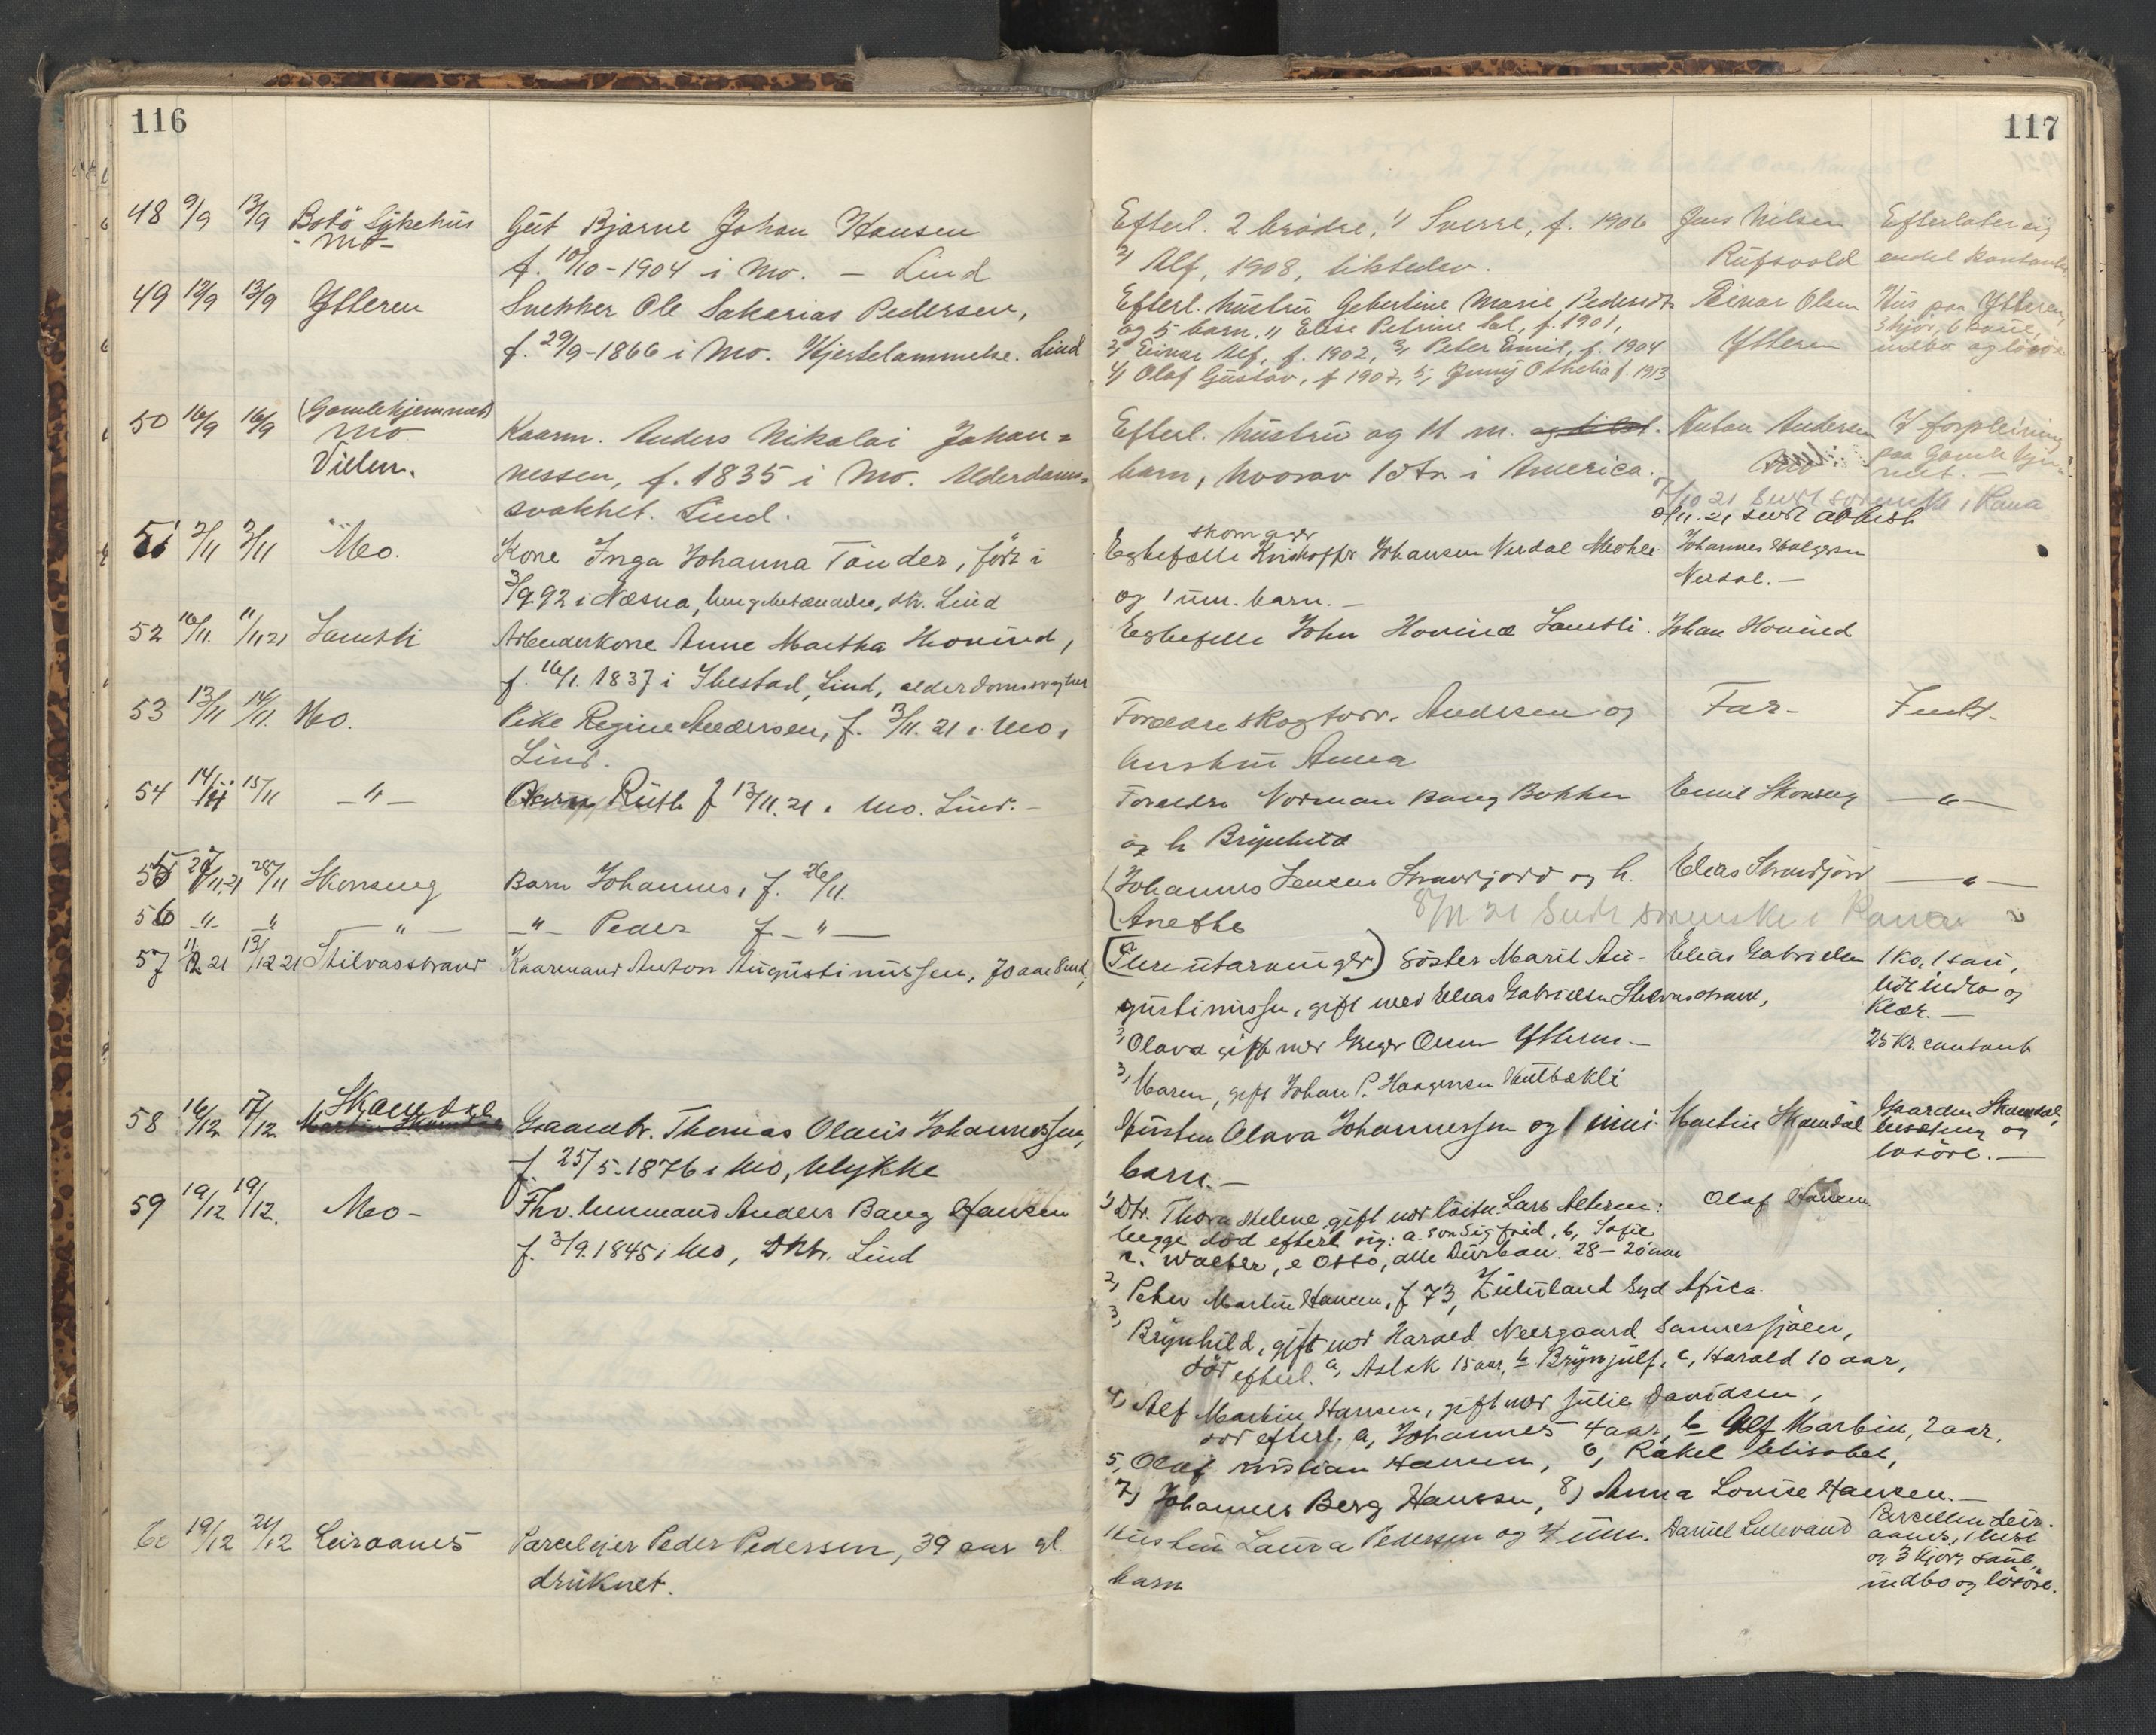 116
48 9/9 13/9 Bodö Sykehus Gut Bjarne Johan Hansen
- Mo - f. 10/10-1904 i Mo. - Lind
49 12/9 13/9 Ytteren Snekker Ole Sakarias Pedersen,
f. 29/9-1866 i Mo. Hjertelammelse. Lind
50 16/9 16/9 (Gamlehjemmet)
Mo Kaarm. Anders Nikolai Johan=
nessen, f. 1835 i Mo. Alderdoms=
svakhet. Lind.
51 2/11 2/11 Mo. Kone Inga Johanna Tönder, född i
3/9.92 i Næsna, lungebetændelse, dkr. Lind
52 10/11. 11/11 21 Arbeiderkone Anne Martha Hovind,
f. 16/1. 1837 i Ibestad, Lind, alderdomssvaghet
53 13/11 14/11. Mo. Pike Regine Andersen, f. 13/11. 21 i Mo,
Lind.
54 14/11 15/11 - " - Barn Ruth f 13/11. 21 i Mo. Lind. -
55 27/11.21 28/11 Skonseng Barn Johannes, f. 26/11.
56 - " - " - " - - " - Peder f - " -
57 11/12 21 13/12 21 Stilvasstrand Kaarmand Anton Augustinussen, 70 aar, Lind,
58 16/12 17/12. Skamdal
Gaardbr. Thomas Olaus Johannessen,
f. 25/5-1876 i Mo, ulykke
59 19/12 19/12. Mo - Fhv. lensmand Anders Bang Hansen
f. 3/9. 1845 i Mo, Dkr. Lind
60 19/12 21/12 Leiraanes Parcelejer Peder Pedersen, 39 aar gl.
druknet.
117
Efterl. 2 brödre, 1) Sverre, f. 1906 Jens Nilsen Efterlater sig
2) Alf, 1908, tilstedev. Rufsvold endel kontanter
Efterl. hustru Gebertine Marie Pedersdtr Einar Olsen Hus paa Ytteren,
og 5 barn. 1) Else Petrine f. 1901,
2) Einar Alf, f. 1902, 3) Peter Emil, f. 1904 Ytteren indbo og lösöre
4) Olaf Gustav, f 1907, 5) Jenny Othelia f. 1913
Efterl. hustru og 11 m. Anton Andersen I forpleining
barn, hvorav 1 dtr. i America. paa Gamlehjem=
met.
7/10 21 sendt sorenskr. i Rana
skomager
Egtefælle Kristoffer Johansen Nerdal Johannes Holgersen
og 1 um. barn. - Nerdal. -
Egtefelle John Hovind Johan Hovind
Forældre skogforv. Andersen og Far - Intet -
hustru Anna
Foreldre Norman Bang Bakken Emil Skonseng - " -
og h Brynhild
Johannes Jensen Strandjord og h. Elias Strandjord - " -
Anethe 8/11 21 Sendt sorenskr. i Rana
(Flere utarvinger) söster Marit Au- Elias Gabrielsen 1 ko, 1 sau,
gustinussen, gift med Elias Gabrielsen Stilvasstrand, lidt indbo og
klær. -
2) Olava gift med Olsen Ytteren - 25 kr. contant
3) Maren, gift Johan P. Haagensen
Hustru Olava Johannessen og 1 umi. Martin Skamdal Gaarden Skamdal,
barn. - besætning og
lösöre. -
1) Dtr. Thora Helene gift med löitn. Lars Alteren: Olaf Hansen
begge död efterl sig: a. son Sigfrid, b, Sofie
c. Walter, e Otto, alle Durban. 28 - 20 aar
2) Peter Martin Hansen, f 73, Zululand Syd Africa.
3) Brynhild, gift med Harald Neergaard Sannessjöen,
död efterl. a, Aslak 15 aar, b Brynjulf, c, Harald 10 aar,
4) Alf Martin Hansen, gift med Julie Davidsen,
död efterl. a, Johannes 4 aar, b Alf Martin, 2 aar.
5, Olaf Kristian Hansen, 6, Rakel Elisabet,
7) Johannes Berg Hanssen, 8) Anna Louise Hansen. -
Hustru Laura Pedersen og 4 um. Daniel Lillevand Parcellen Leir-
barn aanes, 1 hest
og 3 kjör, sau,
indbo og lösöre.